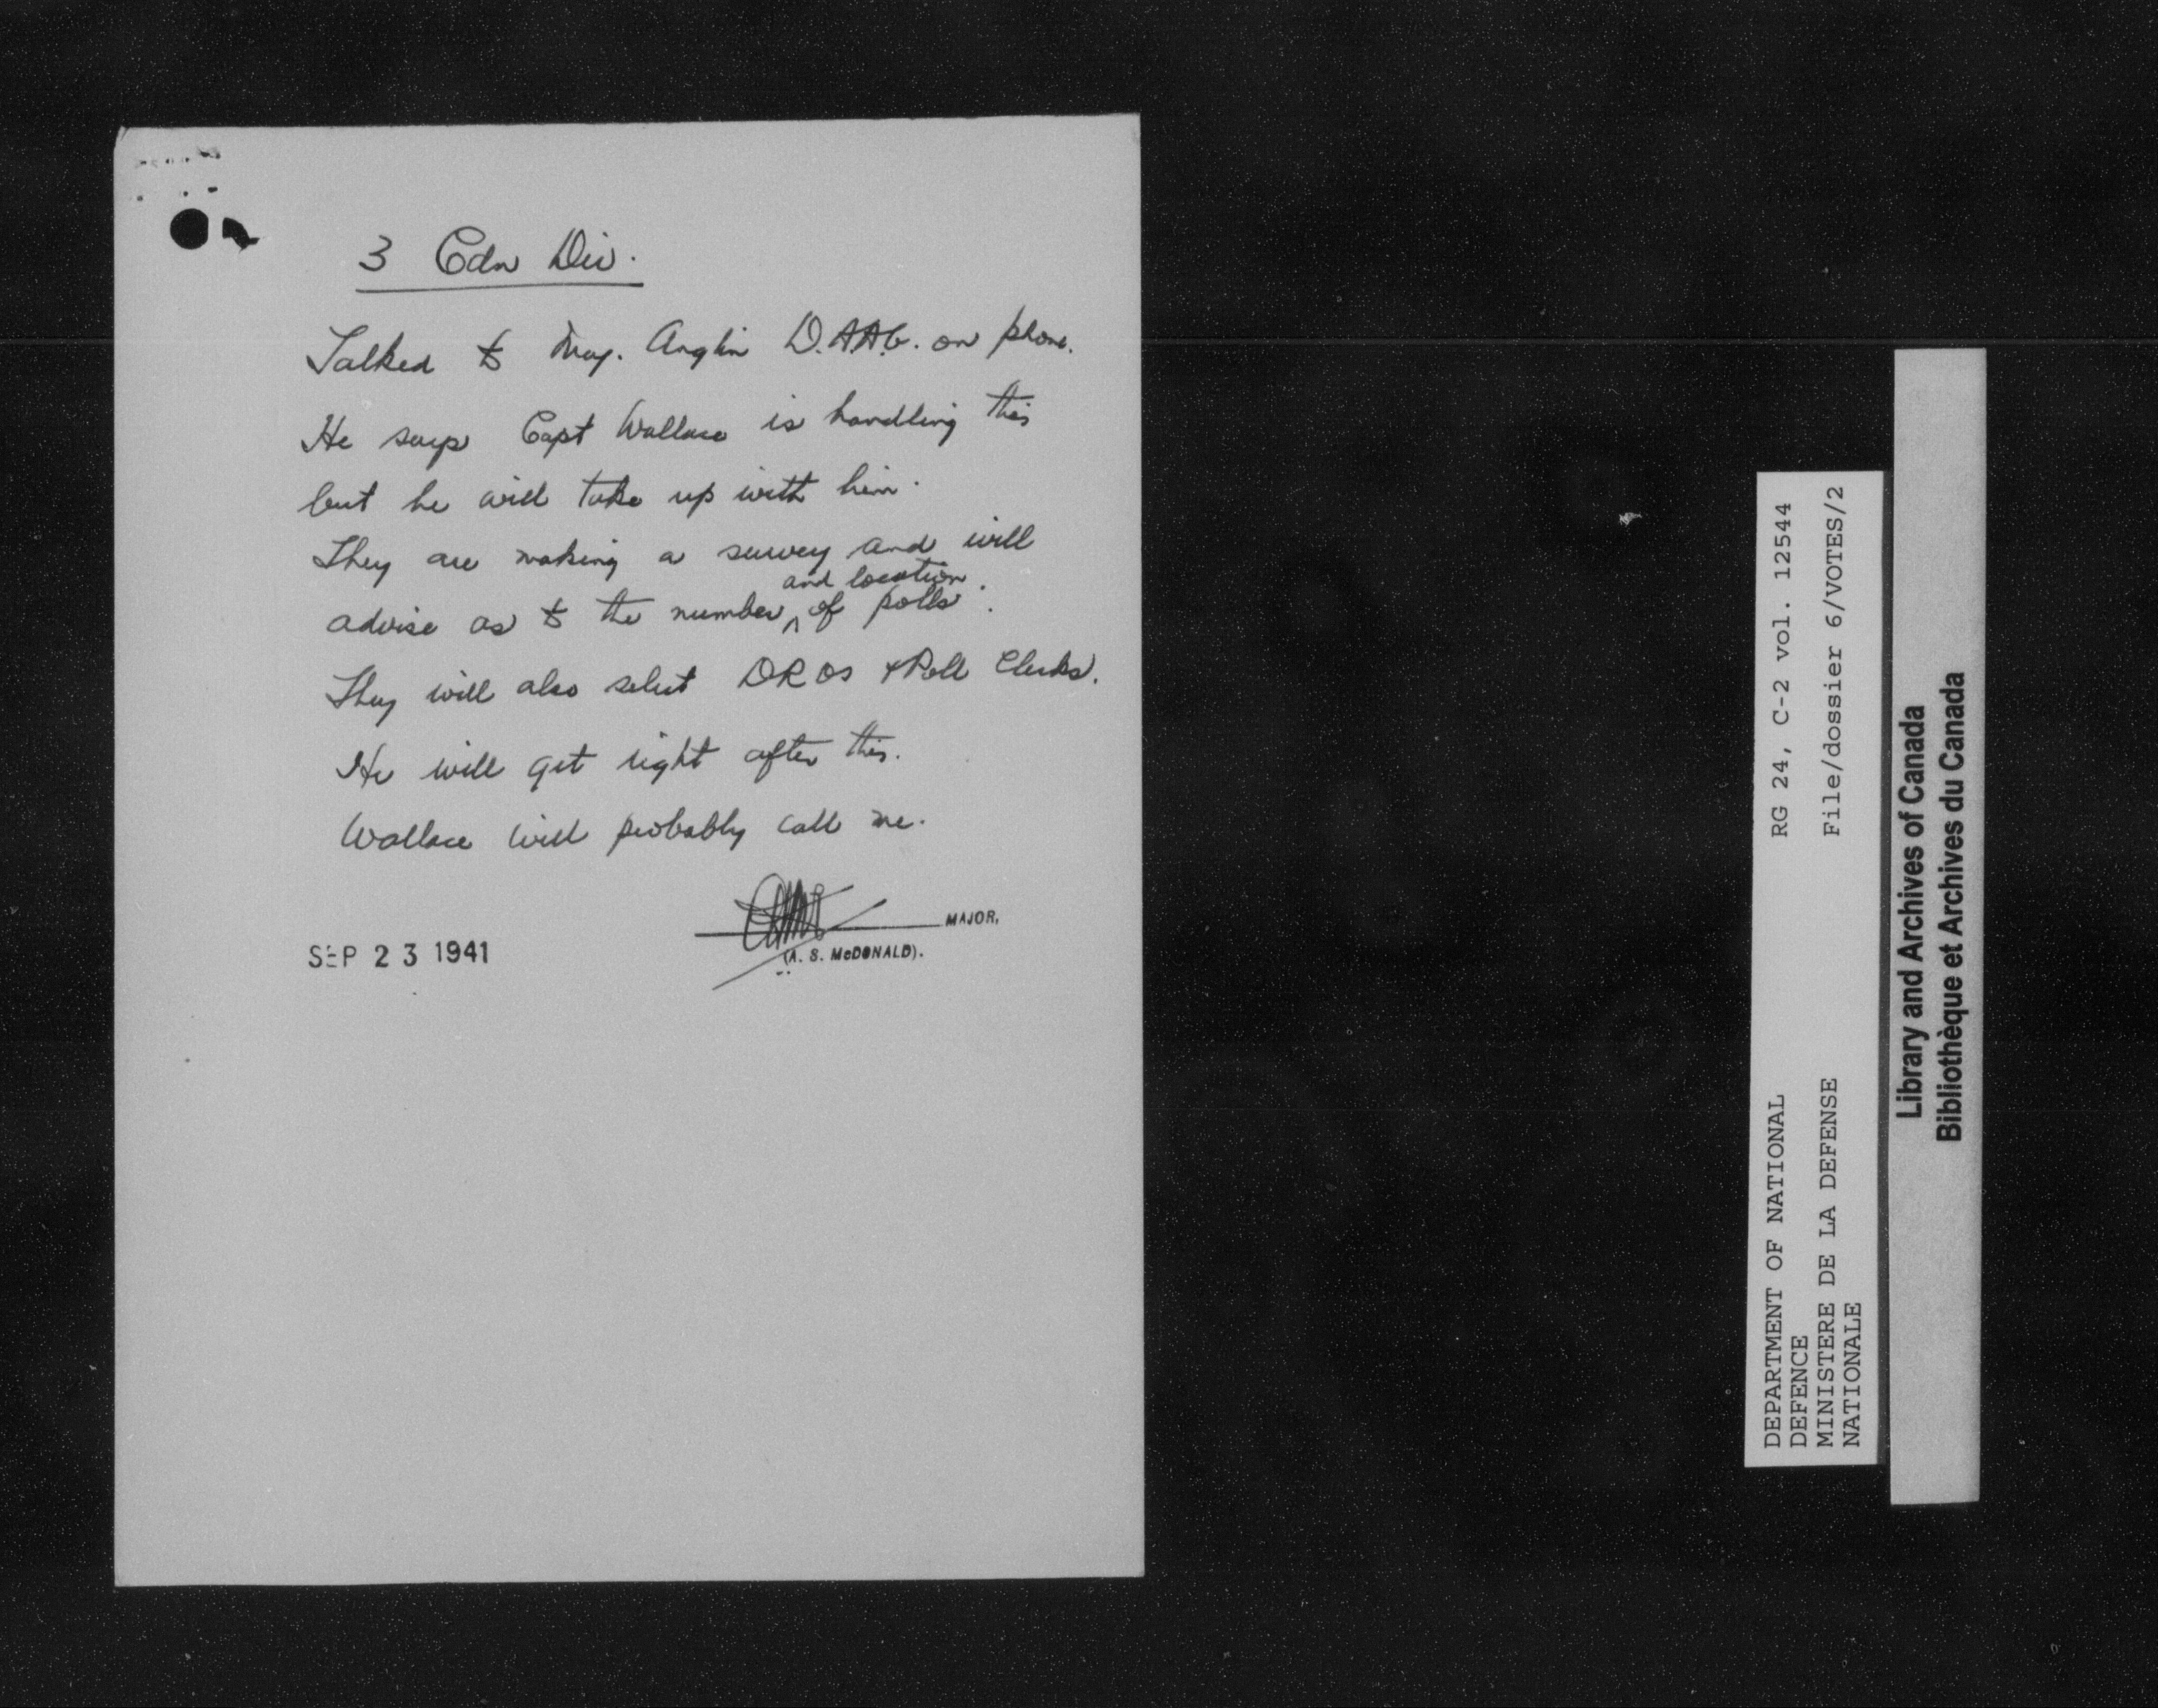 3 Cdn Div.
Talked to Maj. Anglin D.A.A.G. on phone.
He says Capt Wallace is handling this
but he will take up with him.
They are making a survey and will
and location
advise as to the number ^ of polls.
They will also select DROs & Poll Clerks.
He will get right after this.
Wallace will probably call me.
MAJOR,
(A. S. McDONALD).
SEP 23 1941
RG 24, C-2 vol. 12544
File/dossier 6/VOTES/2
DEPARTMENT OF NATIONAL
DEFENCE
MINISTERE DE LA DEFENSE
NATIONALE
Library and Archives of Canada
Bibliothèque et Archives du Canada